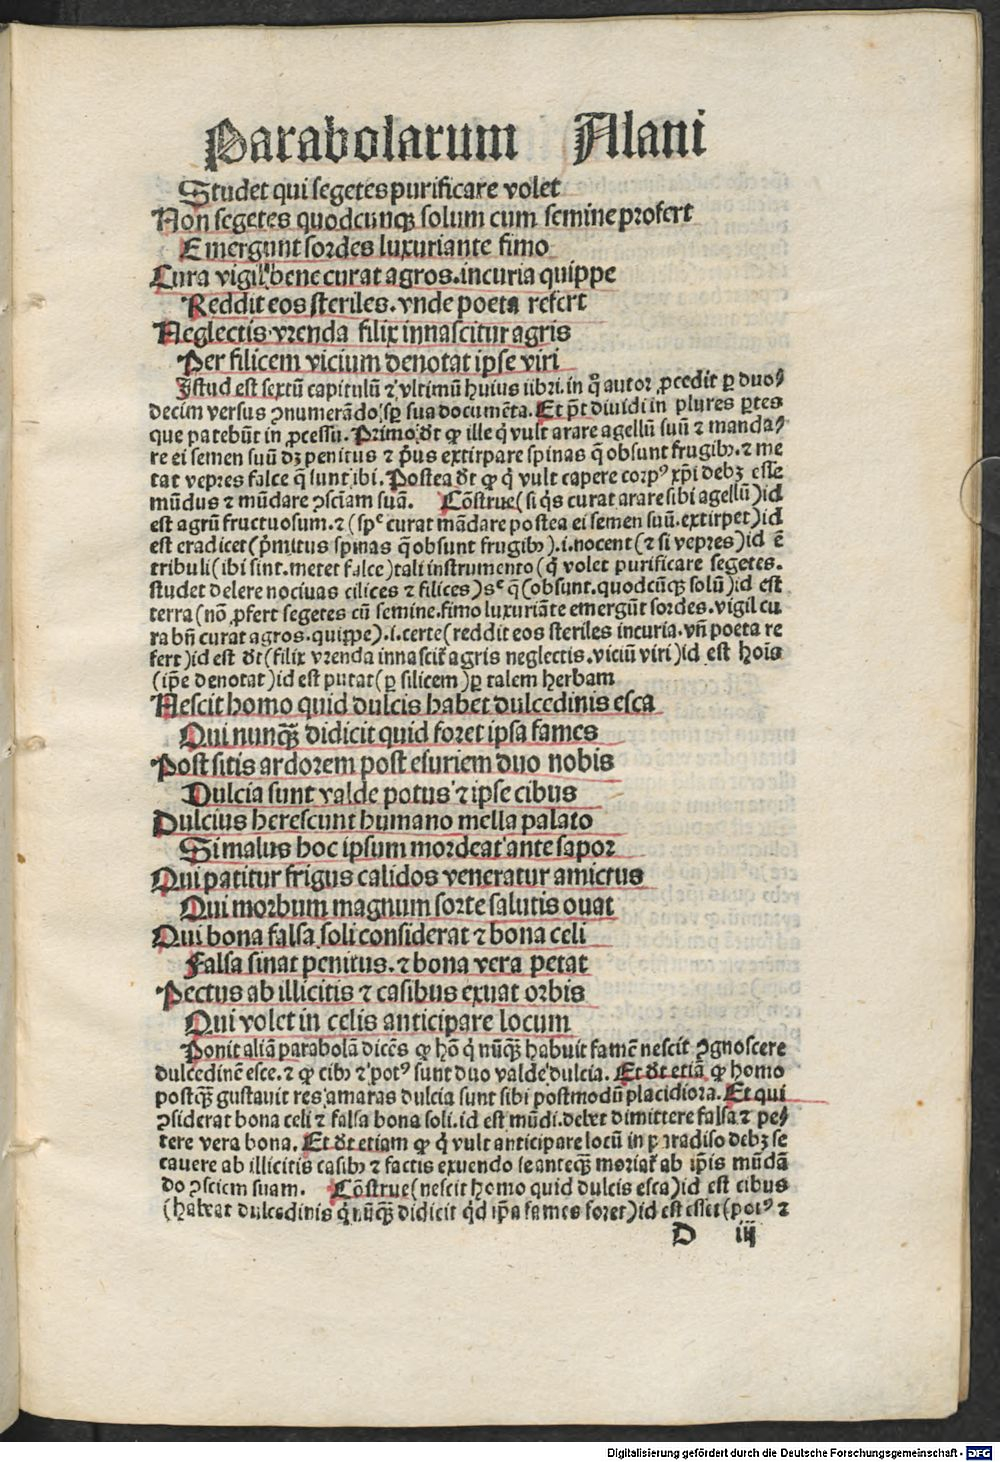 Parabolarum Alani
Studet qui segetes purificare volet
Non segetes quodcunqꝫ solum cum semine profert
Emergunt sordes luxuriante fimo
Cura vigil bene curat agros. incuria quippe
Reddit eos steriles. vnde poeta refert
Neglectis vrenda filix innascitur agris
Per filicem vicium denotat ipse viri
Istud est sextū capitulū ⁊ vltimū huius libri. in q̊ autor ꝓcedit ꝑ duo⸗
decim versus ꝯnumerādo sꝑ sua documēta. Et pn̄t diuidi in plures ꝑtes
que patebūt in ꝓcessu. Primo dt̄ ꝙ ille q̇ vult arare agellū suū ⁊ manda⸗
re ei semen suū dꝫ penitus ⁊ pͥus extirpare spinas q̄ obsunt frugibꝰ. ⁊ me
tat vepres falce q̄ sunt ibi. Postea dt̄ ꝙ q̇ vult capere corpꝰ xp̄i debꝫ esse
mūdus ⁊ mūdare ꝯsciam suā. Cōstrue (si q̇s curat arare sibi agellū) id
est agrū fructuosum. ⁊ (spᵉ curat mādare postea ei semen suū. extirpet) id
est eradicet (pͥmitus spinas q̄ obsunt frugibꝰ) .i. nocent (⁊ si vepres) id ē
tribuli (ibi sint. metet falce) tali instrumento (q̇ volet purificare segetes.
studet delere nociuas cilices ⁊ filices) sᶜ q̄ (obsunt. quodcūqꝫ solū) id est
terra (nō ꝓfert segetes cū semine. fimo luxuriāte emergūt sordes. vigil cu
ra bn̄ curat agros. quippe) .i. certe (reddit eos steriles incuria. vn̄ poeta re
fert) id est dt̄ (filix vrenda innascit᷑ agris neglectis. viciū viri) id est hoīs
(ip̄e denotat) id est putat (ꝑ silicem) ꝑ talem herbam
Nescit homo quid dulcis habet dulcedinis esca
Qui nunqꝫ didicit quid foret ipsa fames
Post sitis ardorem post esuriem duo nobis
Dulcia sunt valde potus ⁊ ipse cibus
Dulcius herescunt humano mella palato
Si malus hoc ipsum mordeat ante sapor
Qui patitur frigus calidos veneratur amictus
Qui morbum magnum sorte salutis ouat
Qui bona falsa soli considerat ⁊ bona celi
Falsa sinat penitus. ⁊ bona vera petat
Pectus ab illicitis ⁊ casibus exuat orbis
Qui volet in celis anticipare locum
Ponit aliā parabolā dicēs ꝙ hō q̇ nūqꝫ habuit famē nescit ꝯgnoscere
dulcedinē esce. ⁊ ꝙ cibꝰ ⁊ potꝰ sunt duo valde dulcia. Et dt̄ etiā ꝙ homo
postqꝫ gustauit res amaras dulcia sunt sibi postmodū placidiora. Et qui
ꝯsiderat bona celi ⁊ falsa bona soli. id est mūdi. debet dimittere falsa ⁊ pe⸗
tere vera bona. Et dt̄ etiam ꝙ q̇ vult anticipare locū in paradiso debꝫ se
cauere ab illicitis casibꝰ ⁊ factis exuendo se anteqꝫ moriat᷑ ab ip̄is mūdā
do ꝯsciem suam. Cōstrue (nescit homo quid dulcis esca) id est cibus
(habeat dulcedinis q̇ nūqꝫ didicit qͥd ip̄a fames foret) id est esset (potꝰ ⁊
D iij
Digitalisierung gefördert durch die Deutsche Forschungsgemeinschaft - DFG